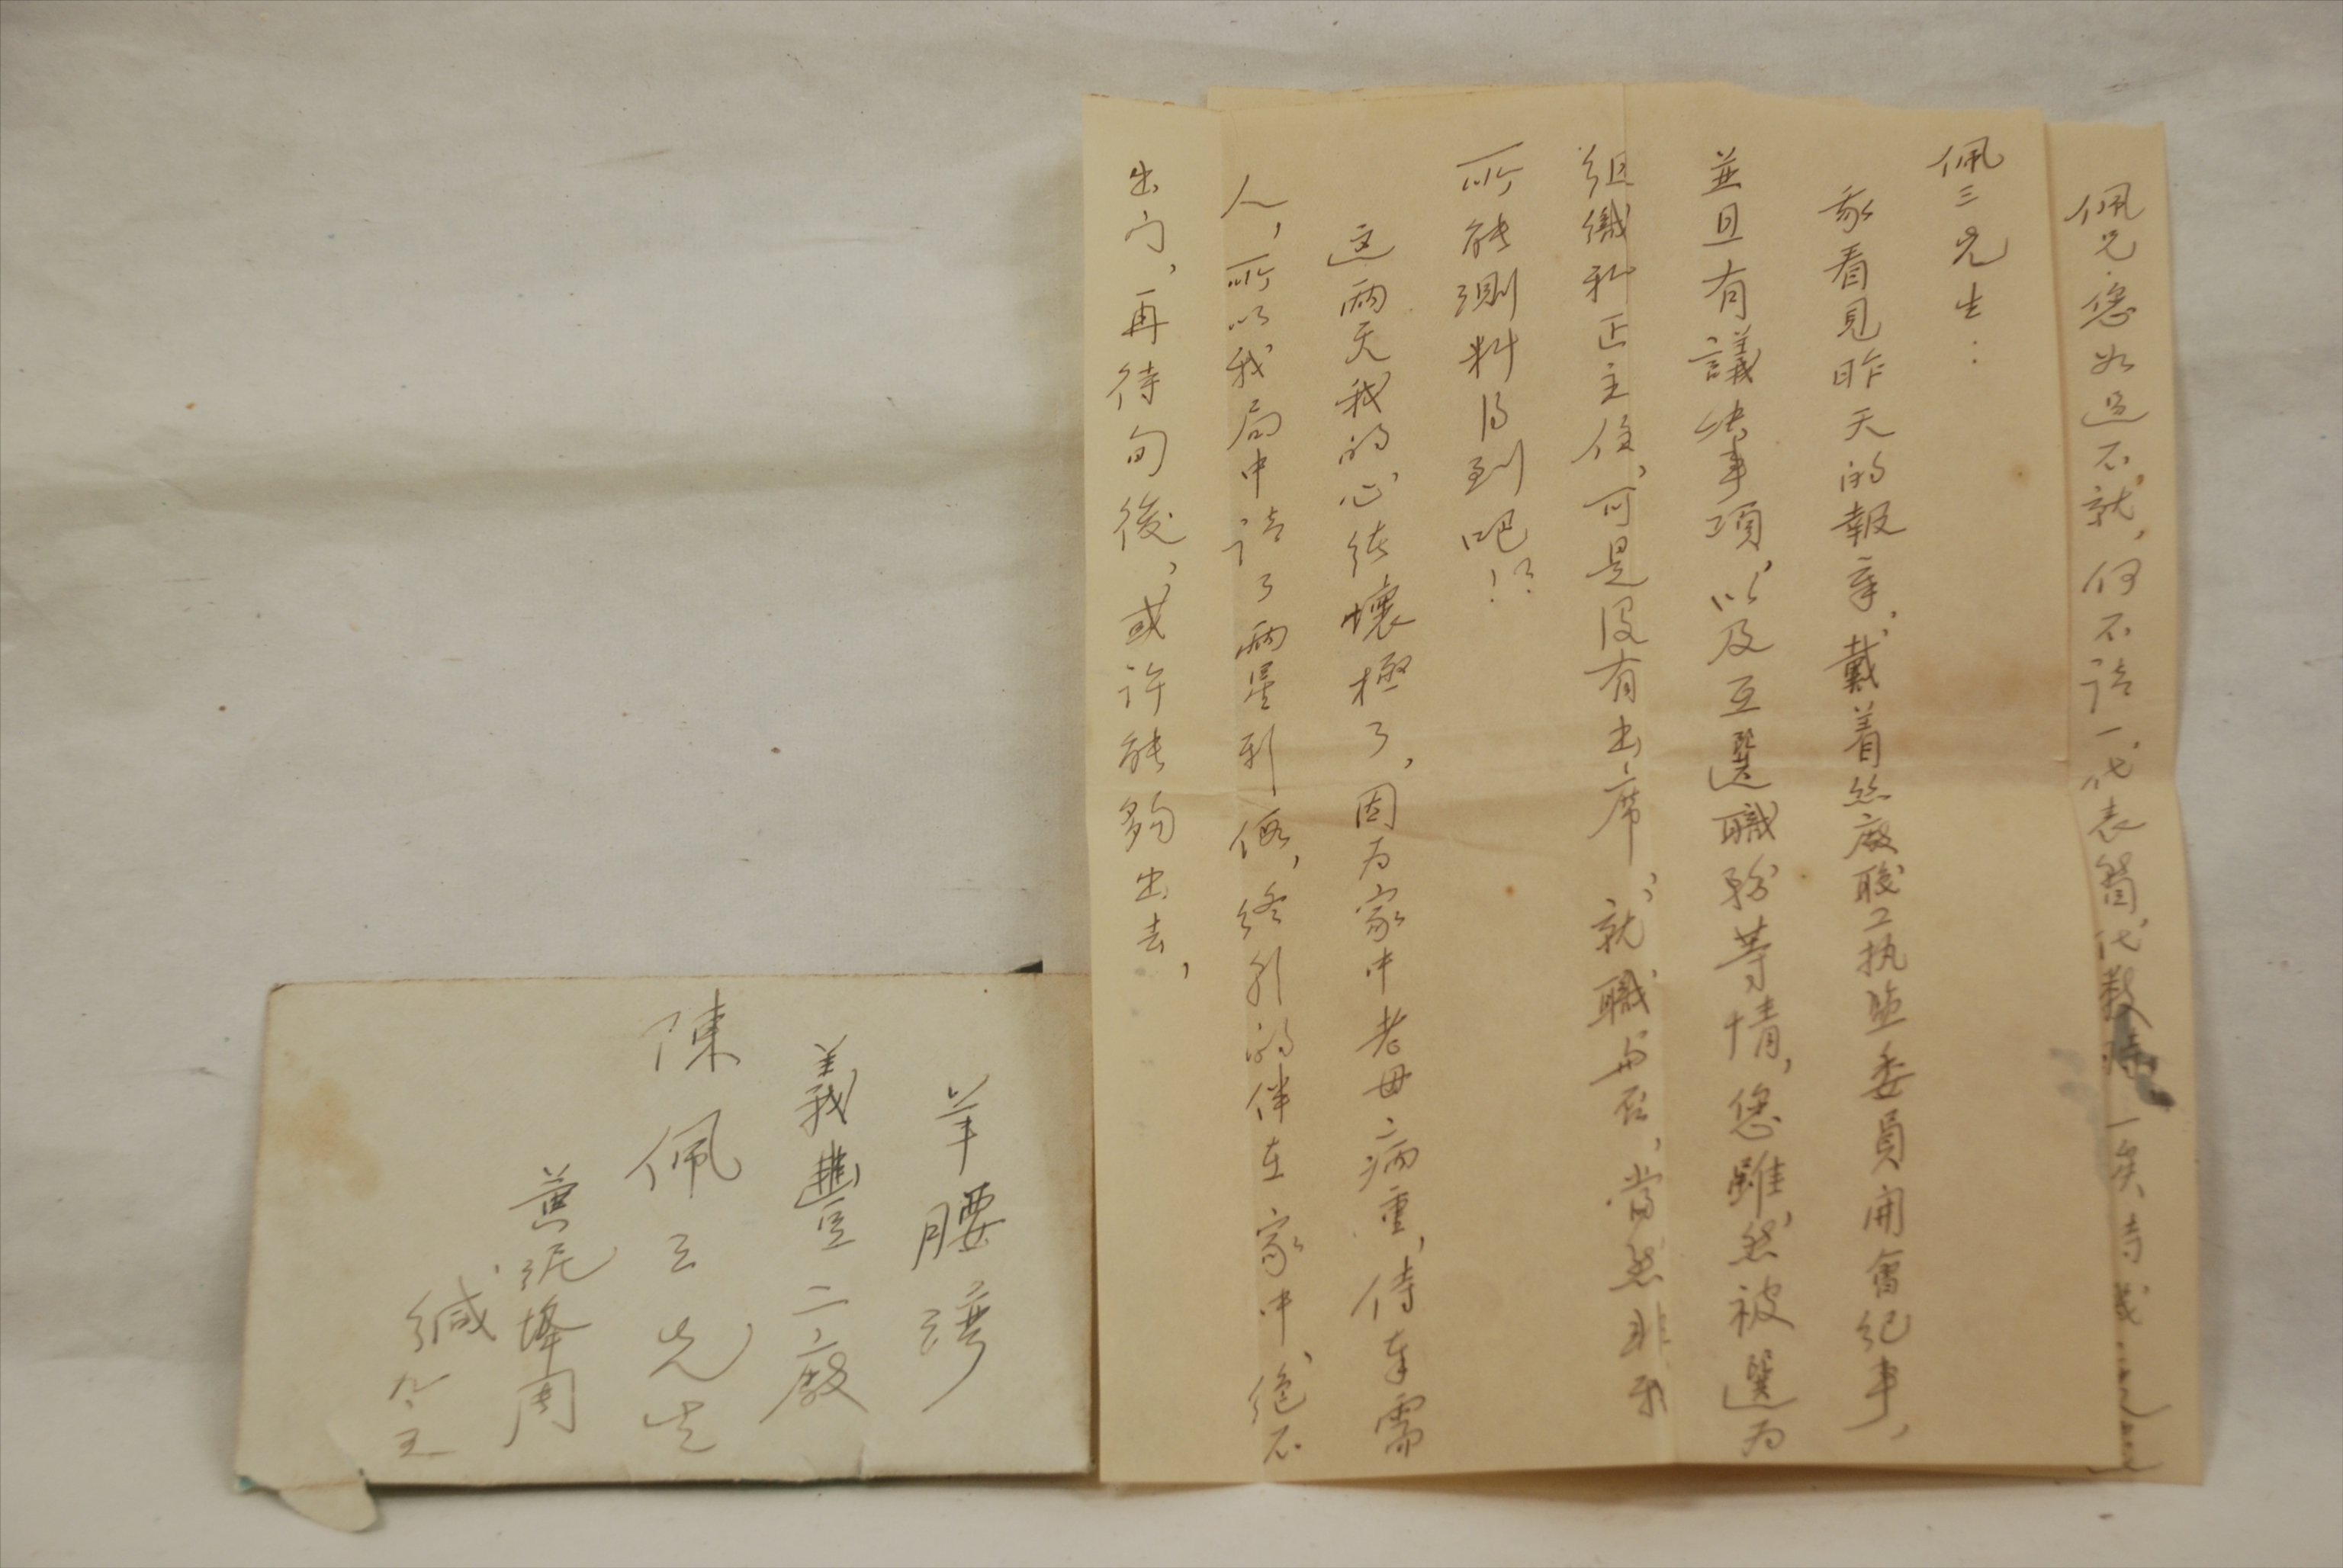 佩兄您如過不就,何不請一代表簡,代數時 一矣
佩三先生:
我看見昨天的報章,戴着絲廠職工执监委員開會纪事,
並且有議决事項,以及互選職務等情,您雖然被選为
組織科正主任,可是没有出席,就職与否,當然非我
所能測料得到吧!?
这兩天我的心绪壞極了,因为家中老母病重,侍奉需
人,所以我局中請了兩星期假,终日的伴在家中,絕不
出门,再待旬後,或许能夠出去,
羊腰湾
義豐二廠
陳佩三先生
黄泥峰周
緘 九、五